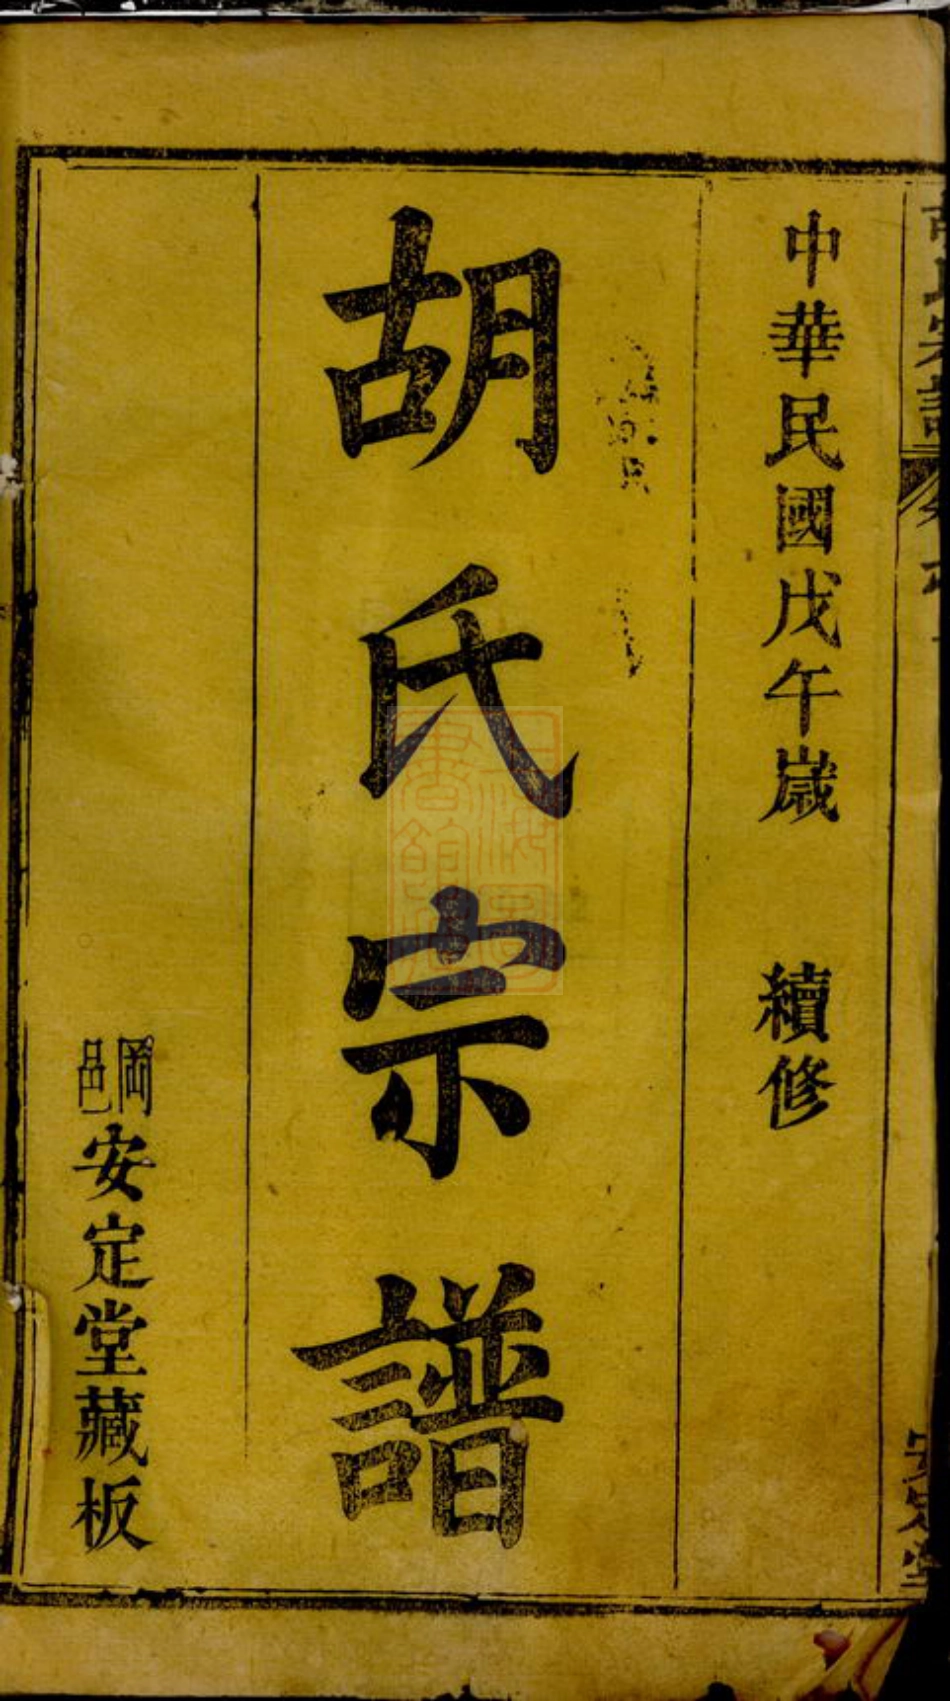 中華民國戊午歲 續修
胡氏宗譜
岡邑安定堂藏板